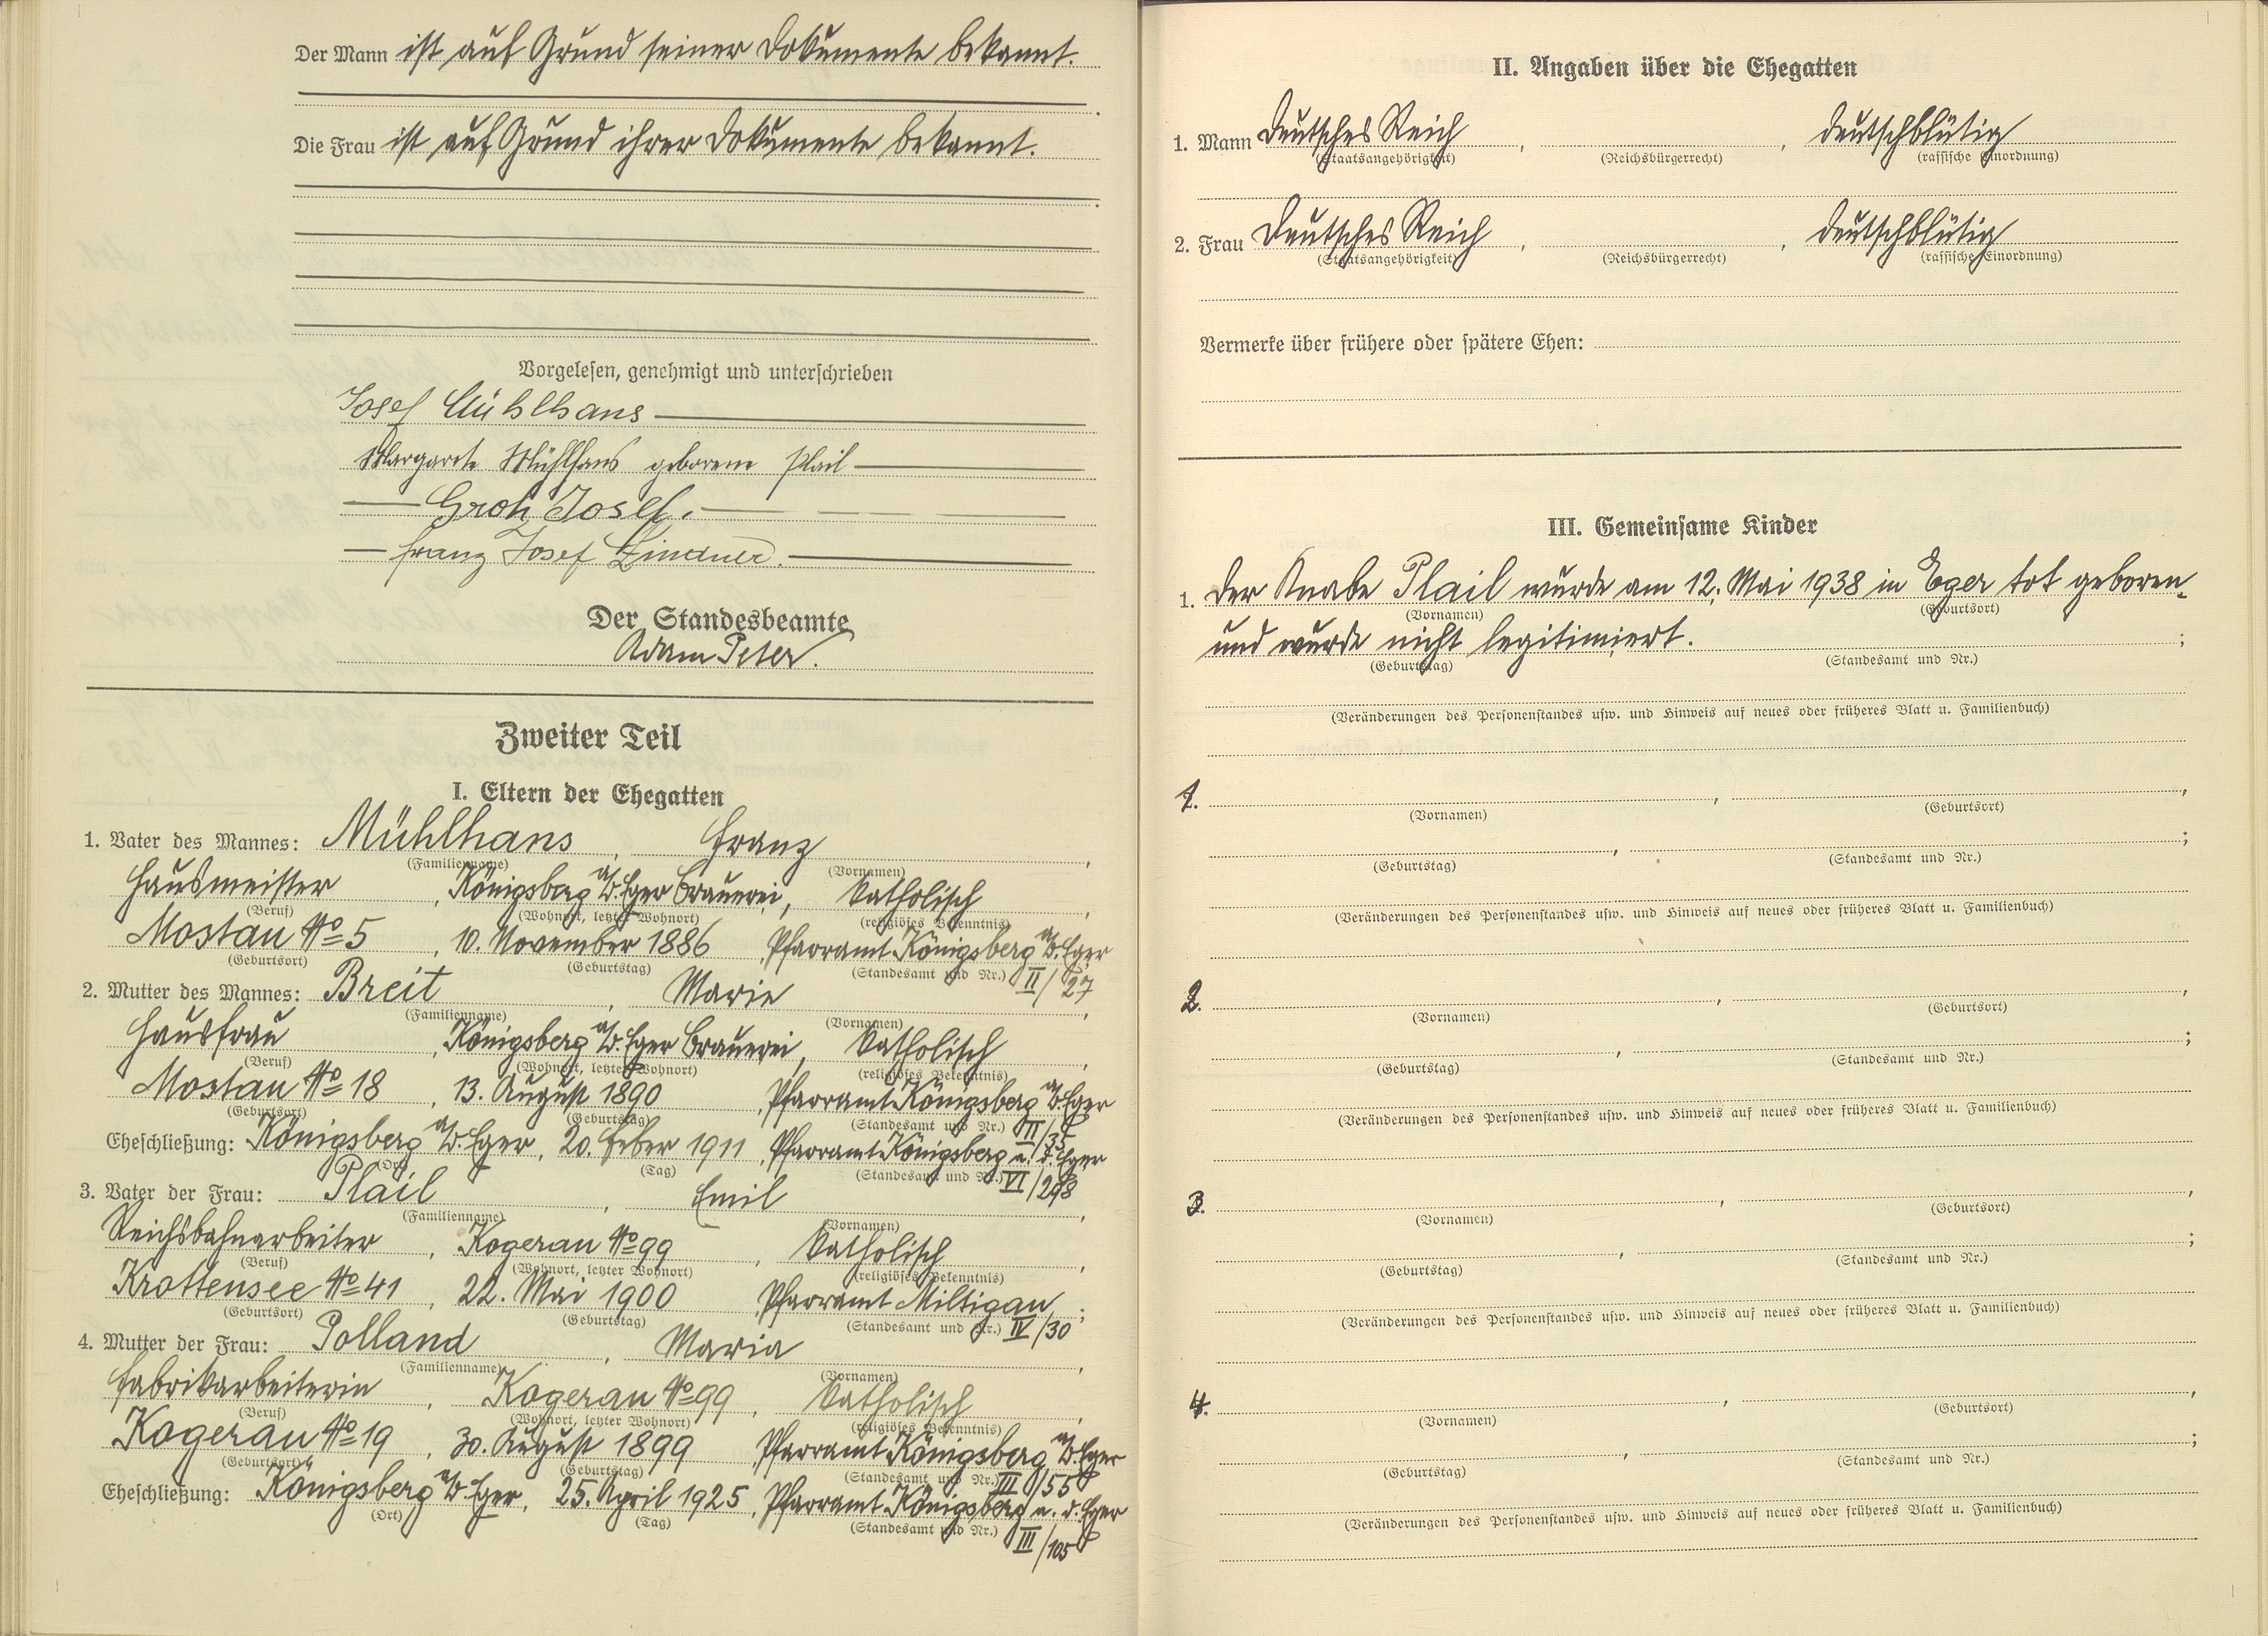 Der Mann ist auf Grund seiner Dokumente bekannt.
Die Frau ist auf Grund ihrer Dokumente bekannt.
Vorgelesen, genehmigt und unterschrieben
Josef Mühlhans
Margarete Mühlhans geborene Plail
Groh Josef.
Franz Josef Lindner.
Der Standesbeamte
Adam Peter.
Zweiter Teil
I. Eltern der Ehegatten
1. Vater des Mannes: Mühlhans, Franz,
(Familienname) (Vornamen)
Hausmeister, Königsberg a/d. Eger Brauerei, katholisch,
(Beruf) (Wohnort, letzter Wohnort) (religiöses Bekenntnis)
Mostau No 5, 10. November 1886, Pfarramt Königsberg a/d. Eger
(Geburtsort) (Geburtstag) (Standesamt und Nr.) II/27
2. Mutter des Mannes: Breit, Marie,
(Familienname) (Vornamen)
Hausfrau, Königsberg a/d. Eger Brauerei, katholisch,
(Beruf) (Wohnort, letzter Wohnort) (religiöses Bekenntnis)
Mostau No 18, 13. August 1890, Pfarramt Königsberg a/d. Eger
(Geburtsort) (Geburtstag) (Standesamt und Nr.) III/35
Eheschließung: Königsberg a/d. Eger, 20. Feber 1911, Pfarramt Königsberg a. d. Eger
(Ort) (Tag) (Standesamt und Nr.) VI/298
3. Vater der Frau: Plail, Emil,
(Familienname) (Vornamen)
Reichsbahnarbeiter, Kogerau No 99, katholisch,
(Beruf) (Wohnort, letzter Wohnort) (religiöses Bekenntnis)
Krottensee No 41, 22. Mai 1900, Pfarramt Miltigau;
(Geburtsort) (Geburtstag) (Standesamt und Nr.) IV/30
4. Mutter der Frau: Polland, Maria,
(Familienname) (Vornamen)
Fabrikarbeiterin, Kogerau No 99, katholisch,
(Beruf) (Wohnort, letzter Wohnort) (religiöses Bekenntnis)
Kogerau No 19, 30. August 1899, Pfarramt Königsberg a/d. Eger
(Geburtsort) (Geburtstag) (Standesamt und Nr.) III/55
Eheschließung: Königsberg a/d. Eger, 25. April 1925, Pfarramt Königsberg a. d. Eger
(Ort) (Tag) (Standesamt und Nr.) III/105
II. Angaben über die Ehegatten
1. Mann Deutsches Reich, , deutschblütig
(Staatsangehörigkeit) (Reichsbürgerrecht) (rassische Einordnung)
2. Frau Deutsches Reich, , deutschblütig
(Staatsangehörigkeit) (Reichsbürgerrecht) (rassische Einordnung)
Vermerke über frühere oder spätere Ehen:
III. Gemeinsame Kinder
1. Der Knabe Plail wurde am 12. Mai 1938 in Eger tot geboren
(Vornamen) (Geburtsort)
und wurde nicht legitimiert. ;
(Geburtstag) (Standesamt und Nr.)
(Veränderungen des Personenstandes usw. und Hinweis auf neues oder früheres Blatt u. Familienbuch)
1. , ,
(Vornamen) (Geburtsort)
, ;
(Geburtstag) (Standesamt und Nr.)
(Veränderungen des Personenstandes usw. und Hinweis auf neues oder früheres Blatt u. Familienbuch)
2. , ,
(Vornamen) (Geburtsort)
, ;
(Geburtstag) (Standesamt und Nr.)
(Veränderungen des Personenstandes usw. und Hinweis auf neues oder früheres Blatt u. Familienbuch)
3. , ,
(Vornamen) (Geburtsort)
, ;
(Geburtstag) (Standesamt und Nr.)
(Veränderungen des Personenstandes usw. und Hinweis auf neues oder früheres Blatt u. Familienbuch)
4. , ,
(Vornamen) (Geburtsort)
, ;
(Geburtstag) (Standesamt und Nr.)
(Veränderungen des Personenstandes usw. und Hinweis auf neues oder früheres Blatt u. Familienbuch)